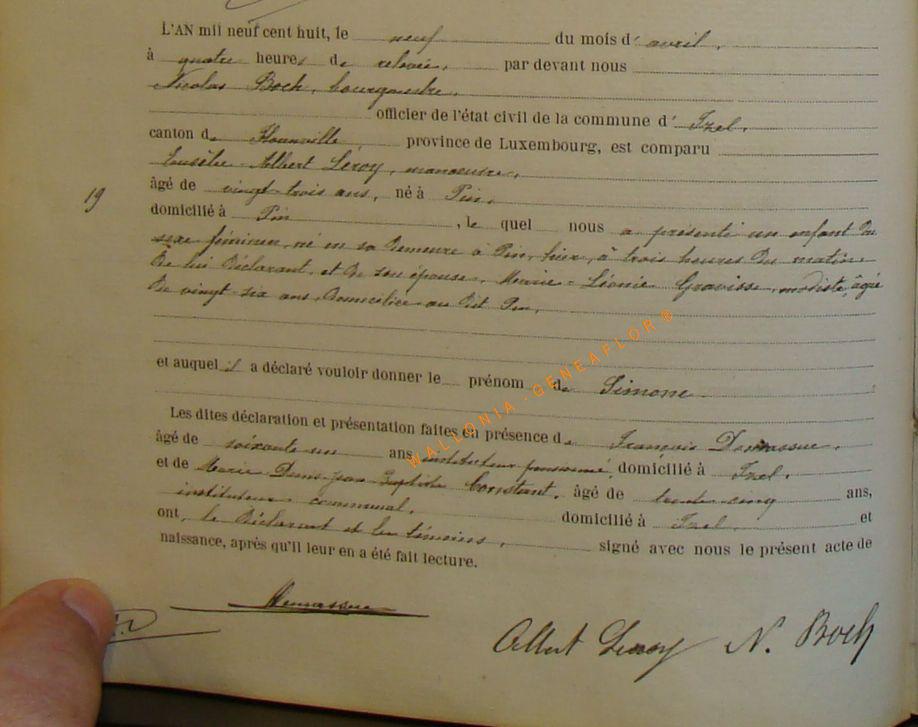 L'AN mil neuf cent huit, le neuf du mois d' avril,
à quatre heures de relevée, par devant nous
Nicolas Boch, bourgmestre,
officier de l'état civil de la commune d' Izel,
canton de Florenville, province de Luxembourg, est comparu
Eusèbe Albert Leroy, manoeuvre,
âgé de vingt trois ans, né à Pin,
19
domicilié à Pin, le quel nous a présenté un enfant du
sexe féminin, né en sa demeure à Pin, hier, à trois heures du matin
de lui déclarant, et de son épouse, Marie-Léonie Gravisse, modiste, âgée
de vingt-six ans, domiciliée au dit Pin,
et auquel il a déclaré vouloir donner le prénom de Simone
Les dites déclaration et présentation faites en présence de François Demassue,
âgé de soixante un ans instituteur pensionné, domicilié à Izel,
et de Marie Denis-Jean Baptiste Constant, âgé de trente cinq ans,
instituteur communal, domicilié à Izel et
ont, le déclarant et les témoins, signé avec nous le présent acte de
naissance, après qu'il leur en a été fait lecture.
WALLONIA-GENEAFLOR®
Demassue
Albert Leroy N. Boch